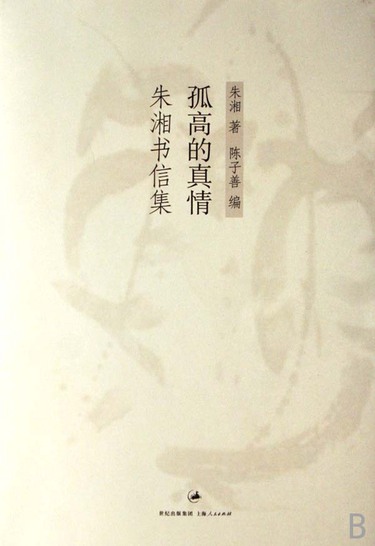 朱湘 著 陈子善 编
孤高的真情
朱湘书信集
世纪出版集团 上海人民出版社
B